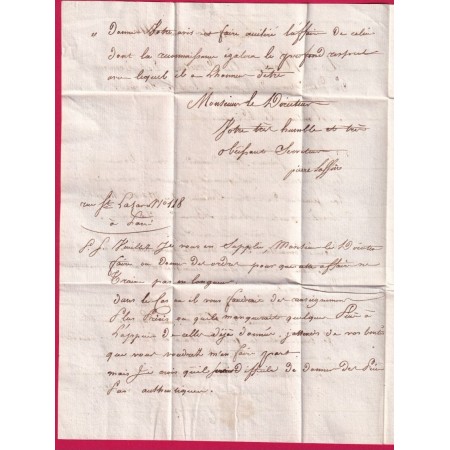 " Donner Votre avis et faire l'affaire de celui
dont la reconnaissance égalera le profond respect
avec lequel il a l'honneur d'être
Monsieur le Directeur
Votre très humble et très
obeissant Serviteur
pierre Laffite
rue St Lazare No 118
à Paris
P. S. Veuillez Je vous en Supplie, Monsieur le Directeur
faire en donner des ordres pour que cette affaire ne
traine pas en longueur
dans le cas où il vous faudrait des renseignemens
Plus Précis ou qu'ils manquerait quelque Pièce à
L'appuie de celle déjà donnée, j'attends de vos bontés
que vous voudrez m'en faire part.
mais Je crois qu'il difficile de donner des Pièces
Plus authentiques.